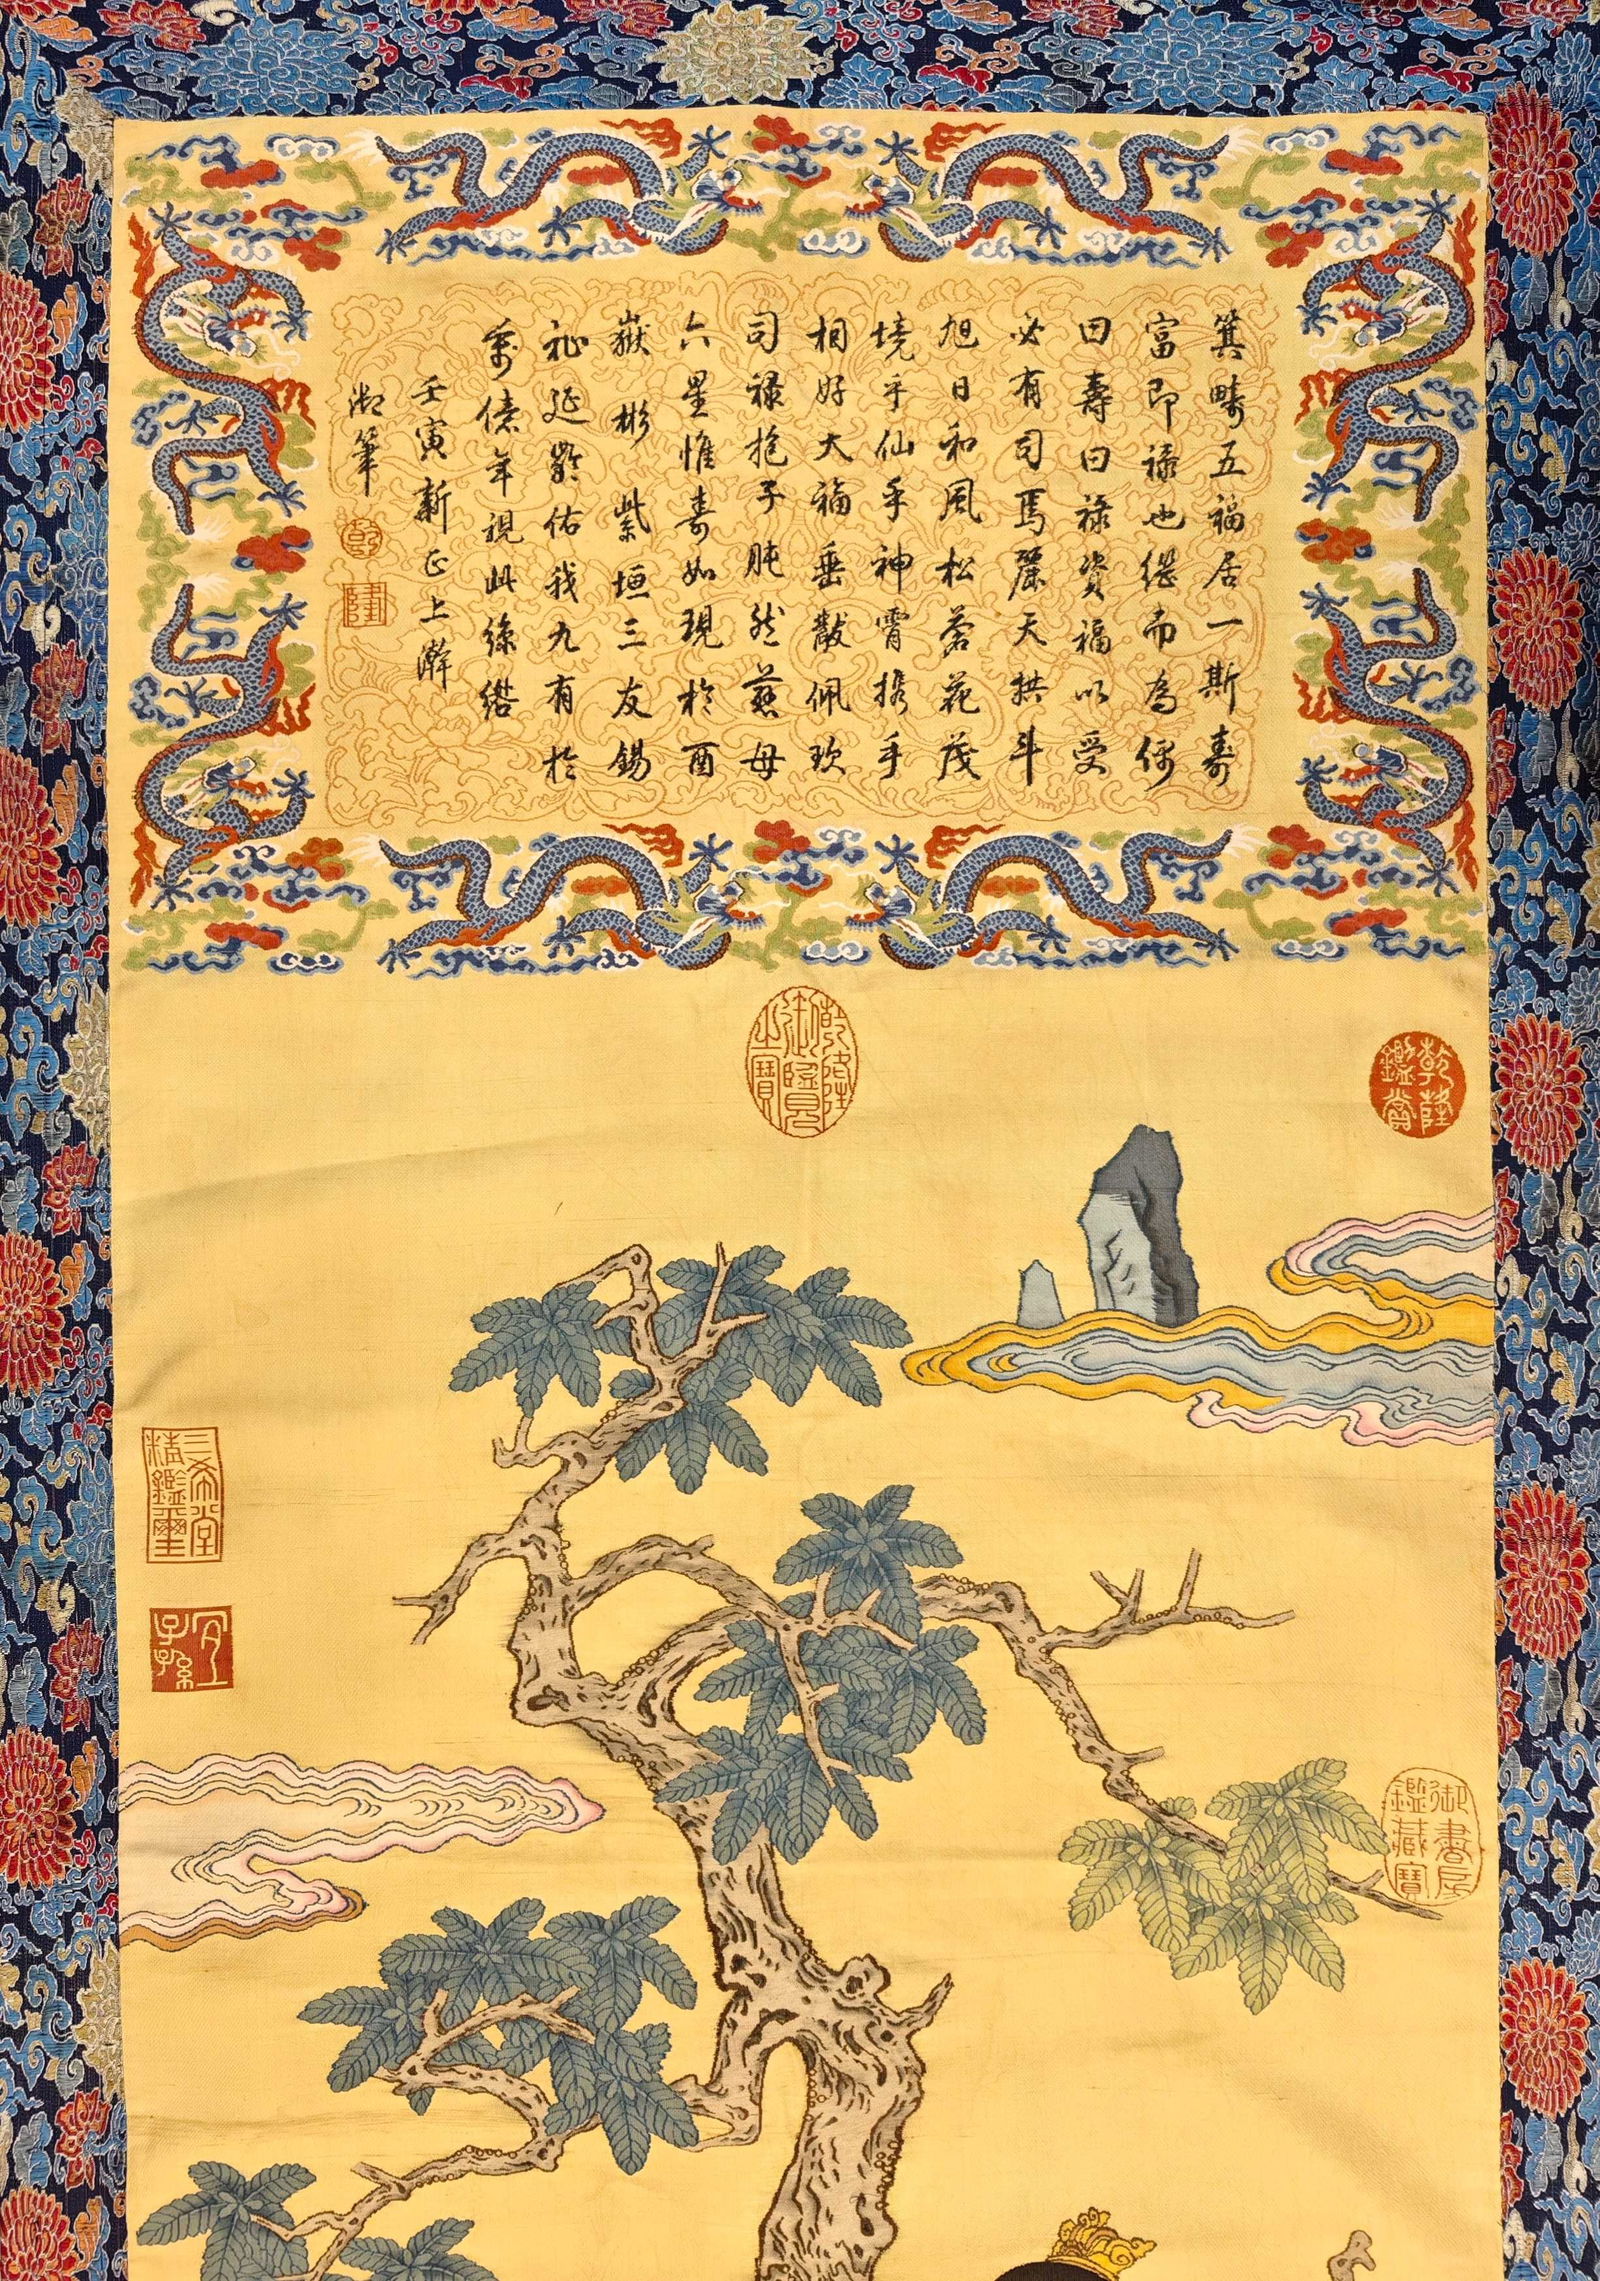 箕疇五福居一斯壽
富即祿也繼而為俩
曰壽曰祿資福以受
必有司馬麗天拱斗
旭日和風松蒼花茂
境乎仙乎神霄携手
相好大福垂黻佩玖
司祿抱子肫然慈母
六星惟壽如現於酉
嶽彬紫垣三友錫
祉延齡佑我九有於
萬億年視此緣綹
壬寅新正上澣
御筆
乾
隆
乾隆御覽之寶
乾隆鑑賞
三希堂精鑑璽
宜子孫
御書房鑑藏寶